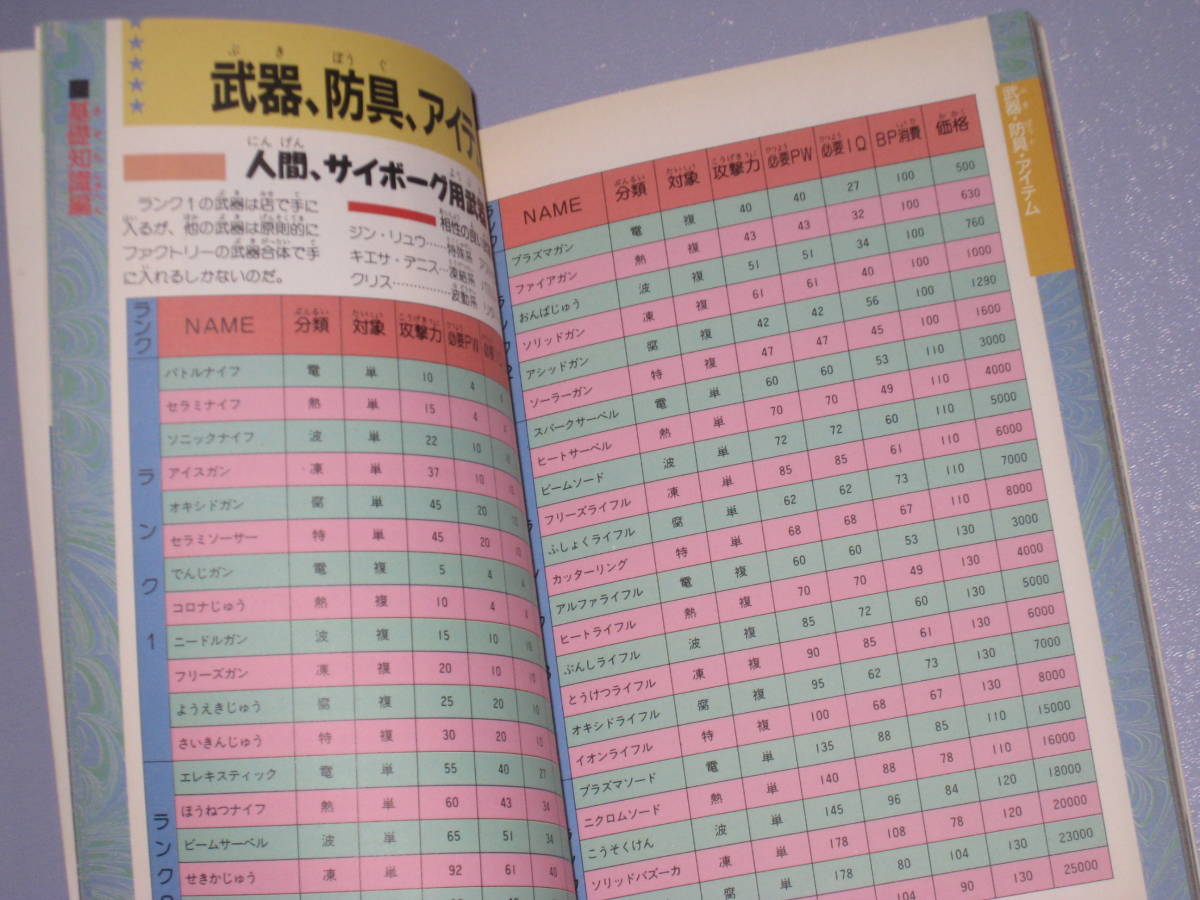 ■基礎知識編
武器、防具、アイテ
人間、サイボーグ用武器
ランク1の武器は店で手に
入るが、他の武器は原則的に
ファクトリーの武器合体で手
に入れるしかないのだ。
相性の良い
ジン・リュウ……特殊系
キエサ・デニス…凍結系
クリス……………波動系
ランク NAME 分類 対象 攻撃力 必要PW
ランク1
バトルナイフ 電 単 10 4
セラミナイフ 熱 単 15 4
ソニックナイフ 波 単 22 10
アイスガン 凍 単 37 10 10
オキシドガン 腐 単 45 20 10
セラミソーサー 特 単 45 20 10
でんじガン 電 複 5 4
コロナじゅう 熱 複 10 4
ニードルガン 波 複 15 10 10
フリーズガン 凍 複 20 10 10
ようえきじゅう 腐 複 25 20 10
さいきんじゅう 特 複 30 20 10
ランク
エレキスティック 電 単 55 40 27
ほうねつナイフ 熱 単 60 43 34
ビームサーベル 波 単 65 51 34
せきかじゅう 凍 単 92 61 40
武器・防具・アイテム
NAME 分類 対象 攻撃力 必要PW 必要IQ BP消費 価格
プラズマガン 電 複 40 40 27 100 500
ファイアガン 熱 複 43 43 32 100 630
おんぱじゅう 波 複 51 51 34 100 760
ソリッドガン 凍 複 61 61 40 100 1000
アシッドガン 腐 複 42 42 56 100 1290
ソーラーガン 特 複 47 47 45 100 1600
スパークサーベル 電 単 60 60 53 110 3000
ヒートサーベル 熱 単 70 70 49 110 4000
ビームソード 波 単 72 72 60 110 5000
フリーズライフル 凍 単 85 85 61 110 6000
ふしょくライフル 腐 単 62 62 73 110 7000
カッターリング 特 単 68 68 67 110 8000
アルファライフル 電 複 60 60 53 130 3000
ヒートライフル 熱 複 70 70 49 130 4000
ぶんしライフル 波 複 85 72 60 130 5000
とうけつライフル 凍 複 90 85 61 130 6000
オキシドライフル 腐 複 95 62 73 130 7000
イオンライフル 特 複 100 68 67 130 8000
プラズマソード 電 単 135 88 85 110 15000
ニクロムソード 熱 単 140 88 78 110 16000
こうそくけん 波 単 145 96 84 120 18000
ソリッドバズーカ 凍 単 178 108 78 120 20000
腐 単 178 80 104 130 23000
104 90 130 25000